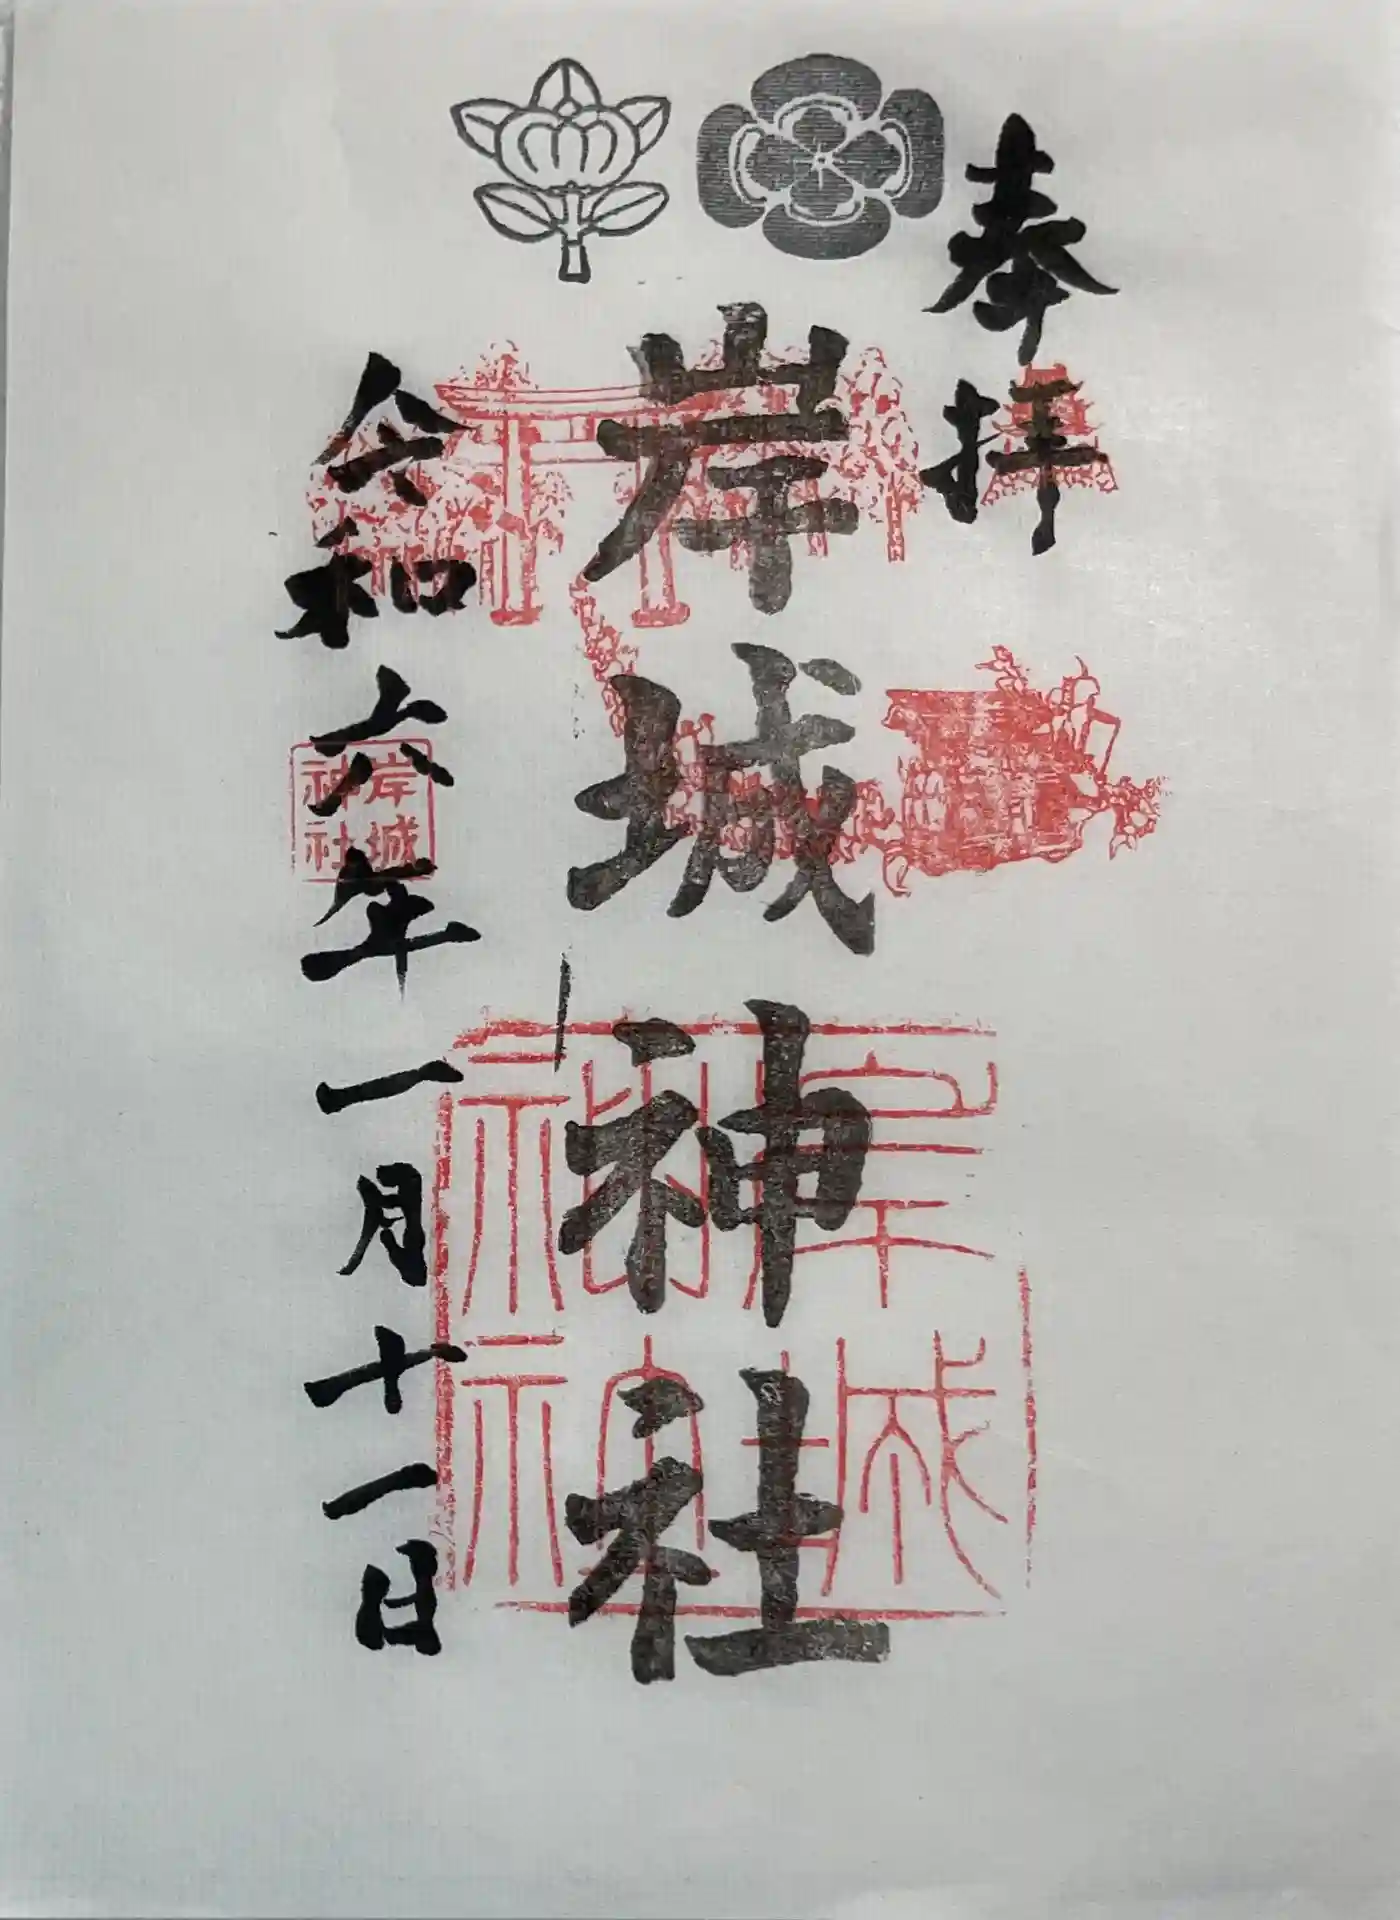 奉拝
岸城神社
令和六年一月十一日
岸城
神社